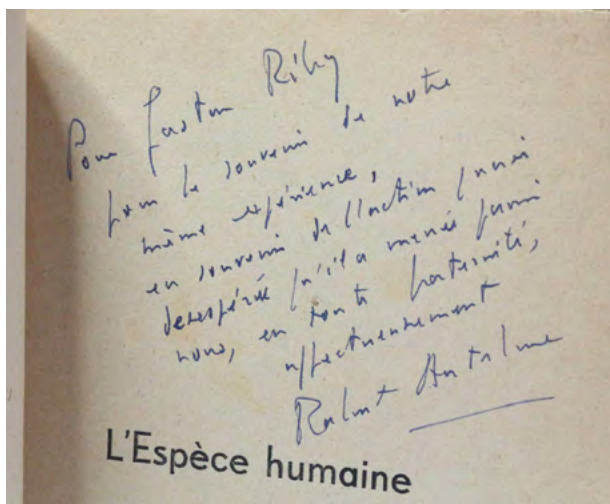 Pour Gaston Riby
pour le souvenir de notre
même expérience,
en souvenir de l'action jamais
desespérée qu'il a menée parmi
nous, en toute fraternité,
affectueusement
Robert Antelme
L'Espèce humaine